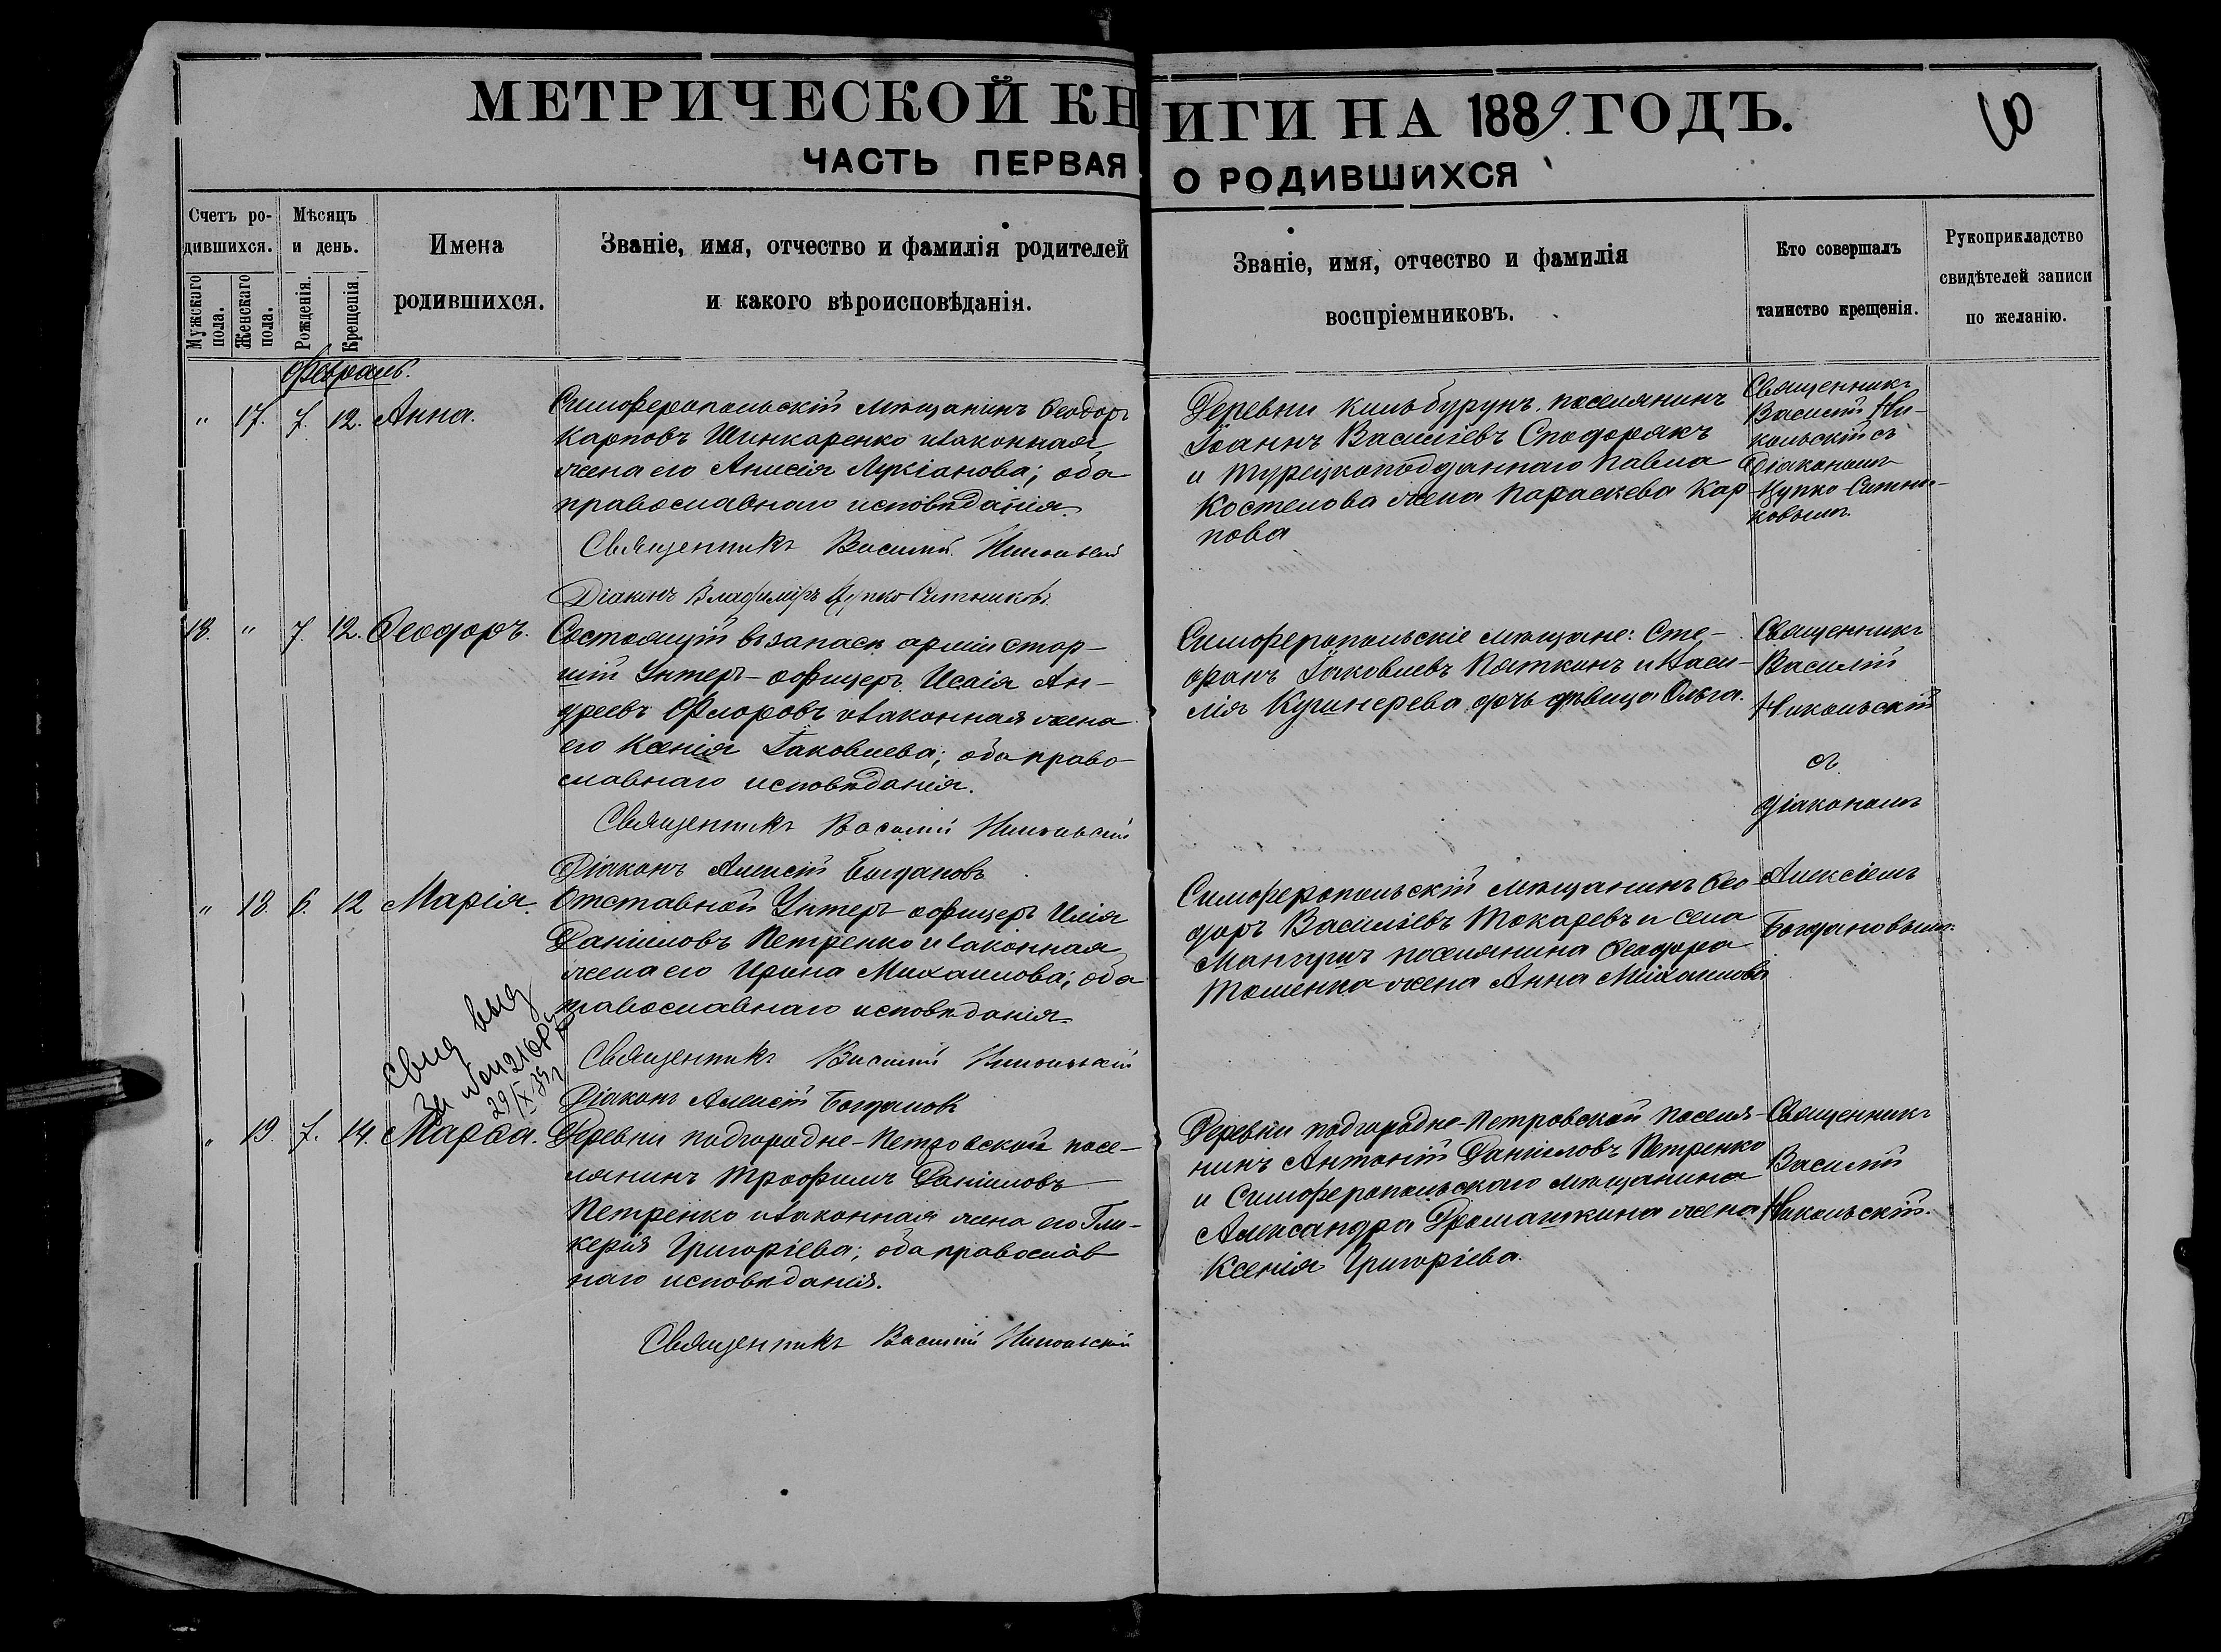 МЕТРИЧЕСКОЙ КНИГИ НА 1889 ГОДЪ.
6
ЧАСТЬ ПЕРВАЯ О РОДИВШИХСЯ
Счетъ ро-
дившихся.
Мужскаго
пола.
Женскаго
пола.
Мѣсяцъ
и день.
Рожденія.
Крещенія.
Имена
родившихся.
Званіе, имя, отчество и фамилія родителей
и какого вѣроисповѣданія.
Званіе, имя, отчество и фамилія
воспріемниковъ.
Кто совершалъ
таинство крещенія.
Рукоприкладство
свидѣтелей записи
по желанію.
Февраль.
" 17. 7. 12. Анна.
Симферопольскій мѣщанинъ Ѳеодоръ
Карповъ Шинкаренко и законная
жена его Анисія Лукіанова; оба
православнаго исповѣданія.
Священникъ Василій Никольскій
Діаконъ Владиміръ Цупко-Ситниковъ.
Деревни Кильбурунъ поселянинъ
Іоаннъ Василіевъ Сподорякъ
и турецкоподданнаго Павла
Костелова жена Параскева Кар
пова
Священникъ
Василій Ни-
кольскій съ
Діакономъ
Цупко-Ситни-
ковымъ.
18. " 7. 12. Ѳеодоръ.
Состоящій въ запасѣ арміи стар-
шій Унтеръ-офицеръ Исаія Ан-
дреевъ Флоровъ и законная жена
его Ксенія Іаковлева; оба право-
славнаго исповѣданія.
Священникъ Василій Никольскій
Діаконъ Алексій Богдановъ
Симферопольскіе мѣщане: Сте-
фанъ Іаковлевъ Пяткинъ и Васи-
лія Кушнерева дочь дѣвица Ольга.
Священникъ
Василій
Никольскій
съ
діакономъ
Алексіемъ
Богдановымъ.
" 18. 6. 12 Марія.
Отставной Унтеръ-офицеръ Илія
Даніиловъ Петренко и законная
жена его Ирина Михаилова; оба
православнаго исповѣданія.
Священникъ Василій Никольскій
Діаконъ Алексій Богдановъ
Симферопольскій мѣщанинъ Ѳео
доръ Василіевъ Токаревъ и села
Мангушъ поселянина Ѳеодора
Тошенка жена Анна Михаилова
свид выд
29/X 39 г
" 19. 7. 14. Марѳа.
Деревни Подгородне-Петровской посе-
лянинъ Трофимъ Даніиловъ
Петренко и законная жена его Гли-
керія Григоріева; оба православ
наго исповѣданія.
Священникъ Василій Никольскій
Деревни Подгородне-Петровской поселя-
нинъ Антоній Даніиловъ Петренко
и Симферопольскаго мѣщанина
Александра Дромашкина жена
Ксенія Григоріева.
Священникъ
Василій
Никольскій.